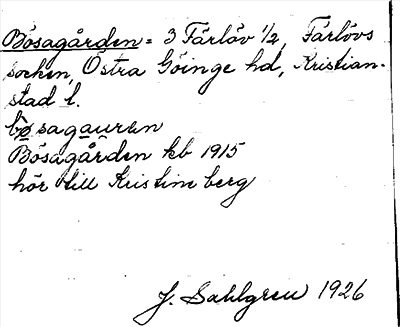 Bösagården = 3 Färlöv 1/2, Färlövs
socken, Östra Göinge hd, Kristian-
stad l.
bøsagaurən
Bösagården kb 1915
hör till Kristineberg
J. Sahlgren 1926